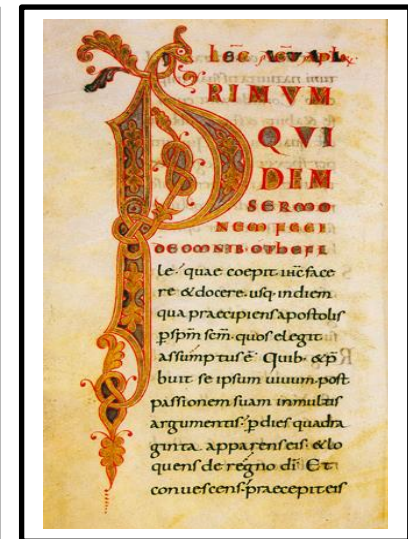 PRIMVM
QVI
DEM
SERMO
NEM FECI
DE OMNIB·
le· quae coepit ihc face
re & docere· usq· in diem
qua praecipiens apostolis
p spm scm· quos elegit
assumptus ē· Quib· & p̄
buit se ipsum uiuum· post
passionem suam in multis
argumentis· p dies quadra
ginta apparens eis· & lo
quens de regno dī· Et
conuescens· praecepit eis